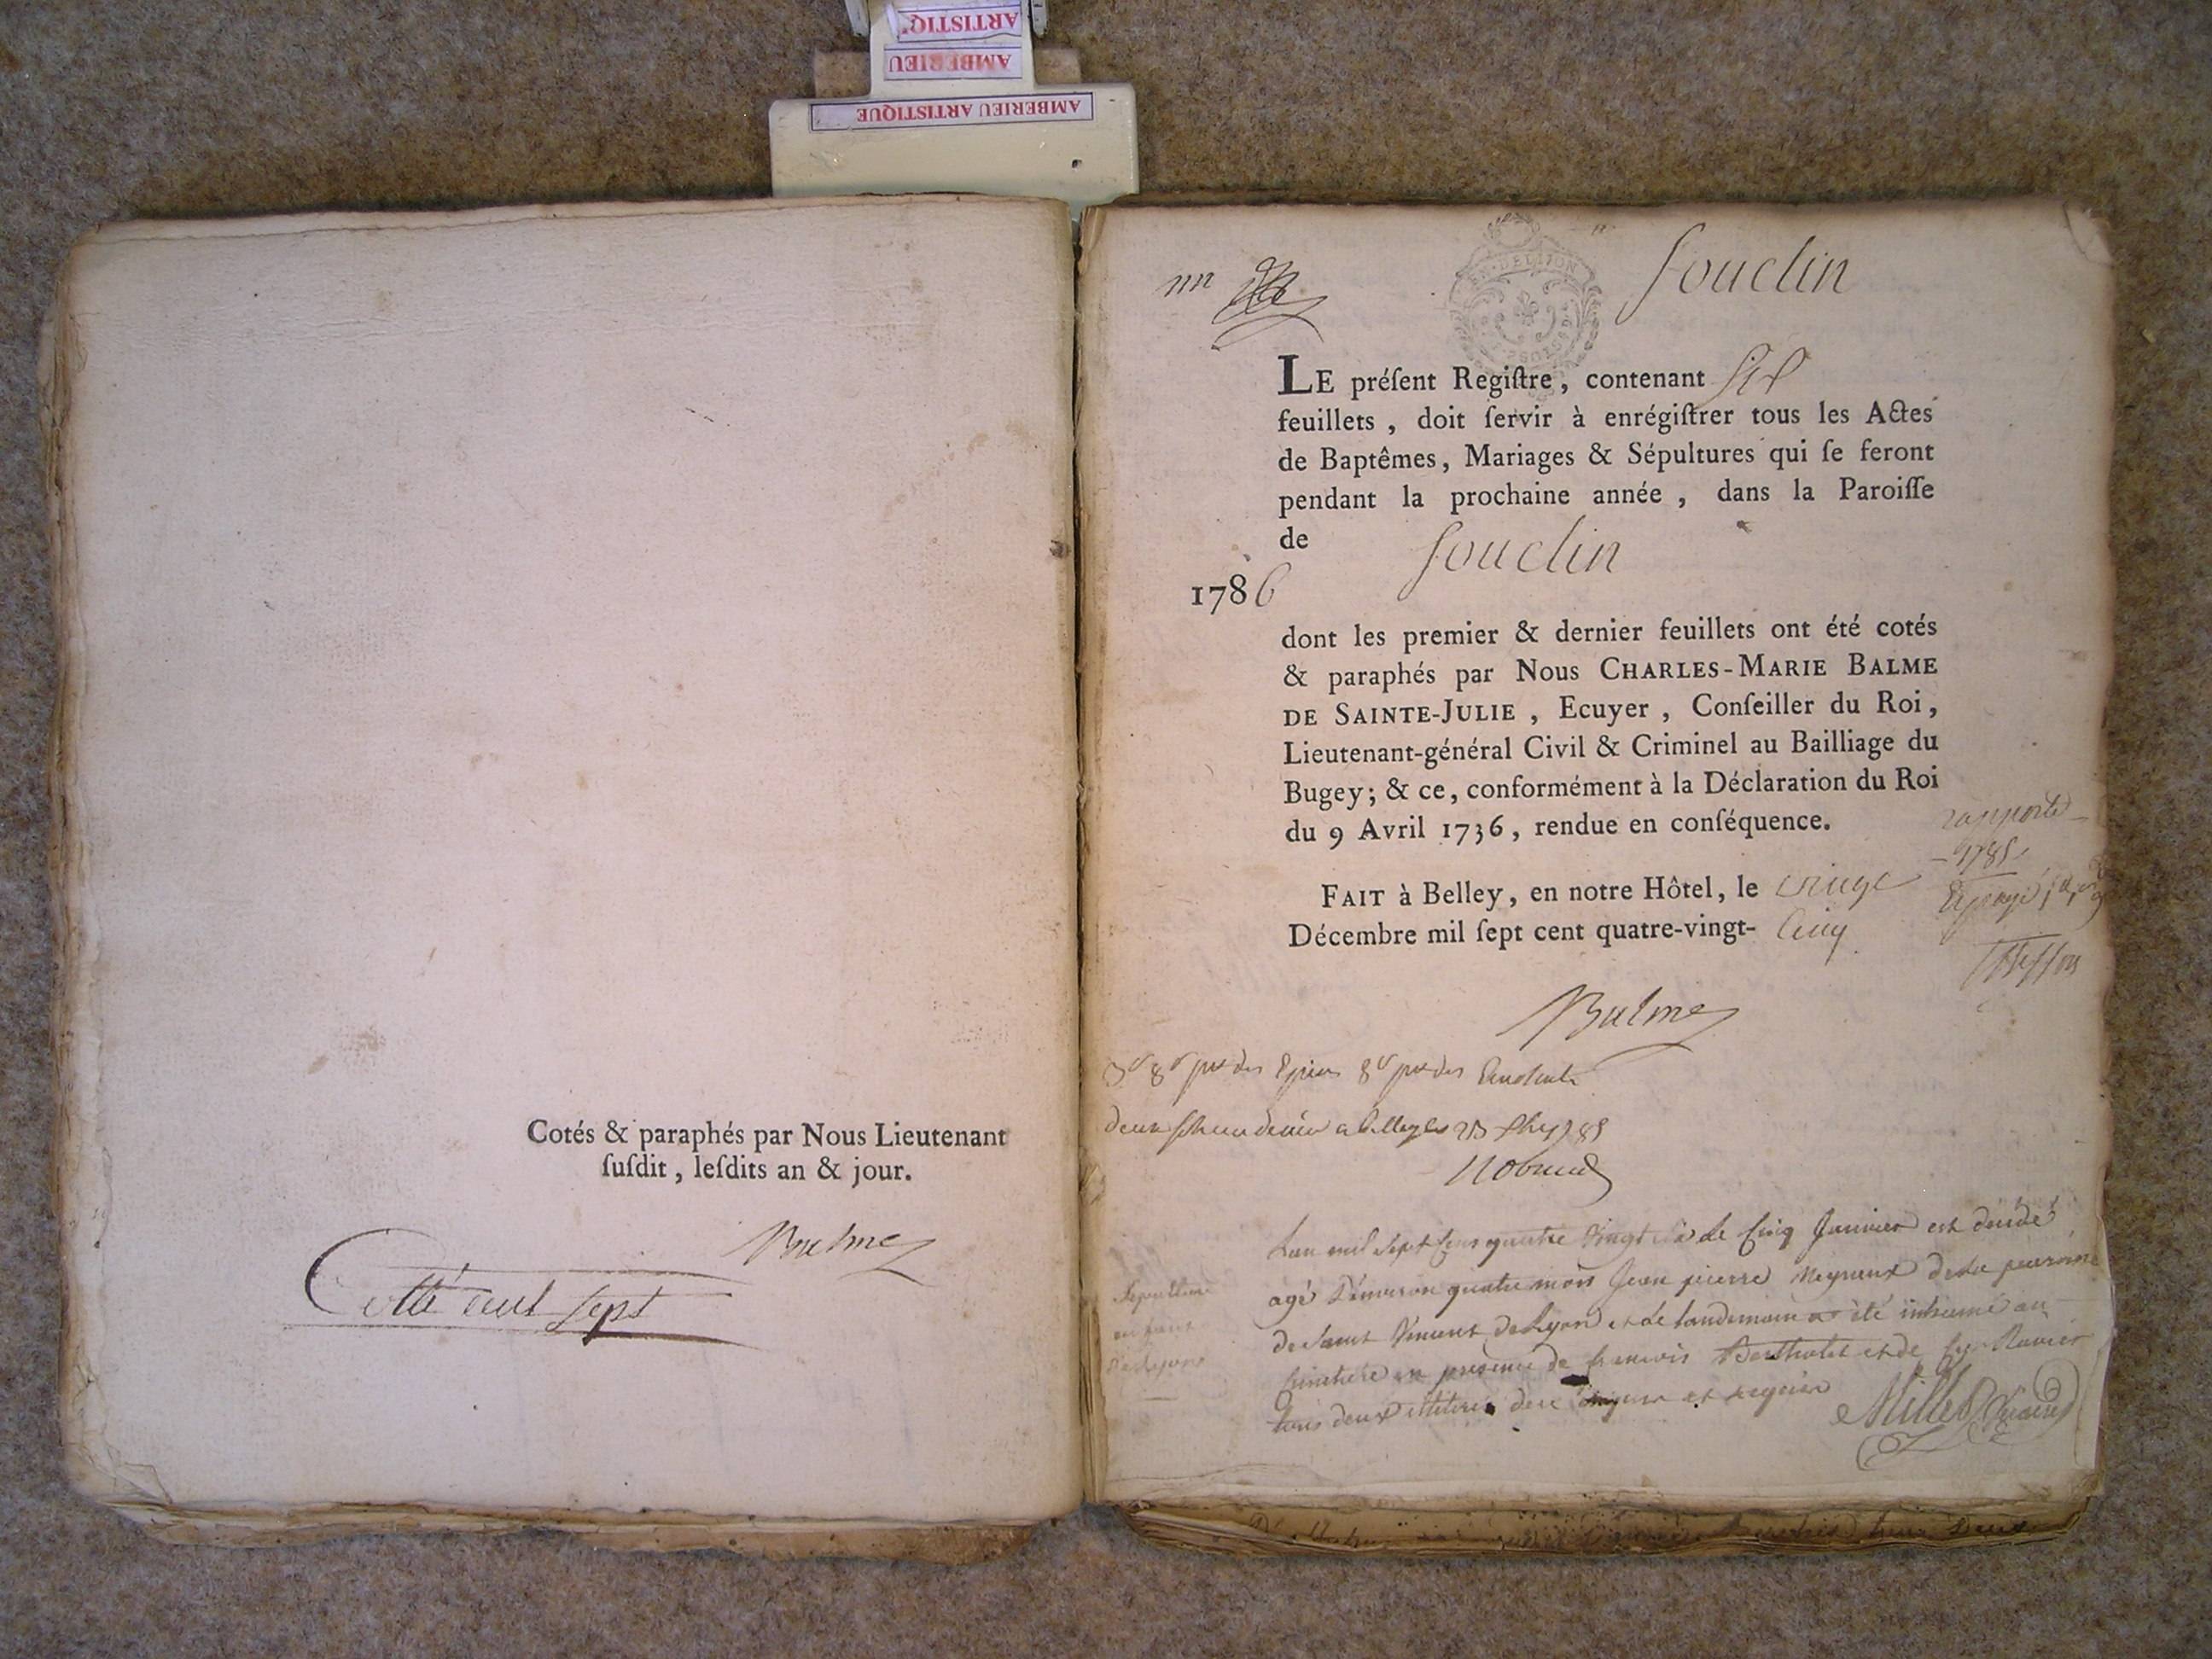 ARTISTIQ'
AMBERIEU
AMBERIEU ARTISTIQUE
Cotés & paraphés par Nous Lieutenant
ſuſdit, leſdits an & jour.
Balme
Cotté et sept
Souclin
LE préſent Regiſtre, contenant six
feuillets, doit ſervir à enrégiſtrer tous les Actes
de Baptêmes, Mariages & Sépultures qui ſe feront
pendant la prochaine année, dans la Paroiſſe
de Souclin
1786
dont les premier & dernier feuillets ont été cotés
& paraphés par Nous CHARLES-MARIE BALME
DE SAINTE-JULIE, Ecuyer, Conſeiller du Roi,
Lieutenant-général Civil & Criminel au Bailliage du
Bugey; & ce, conformément à la Déclaration du Roi
du 9 Avril 1736, rendue en conſéquence.
rapporté
1785
FAIT à Belley, en notre Hôtel, le
Décembre mil ſept cent quatre-vingt- Cinq
Balme
Lan mil sept cens quatre vingt six le cinq Janvier est décédé
agé d'environ quatre mois Jean pierre Meynieux de la paroisse
de Saint Vincent de Lyon et le landemain a été inhumé au
cimetiere en presence de francois Bertholet et de Ravier
tous deux illiterés de ce enquis et requis
Millet vicaire
Sepulture
enfant
de Lyon